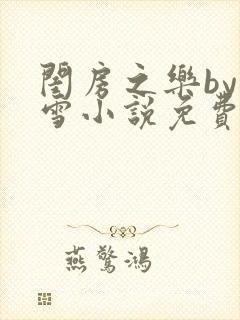 閨房之樂by
雪小說免費
燕驚鴻